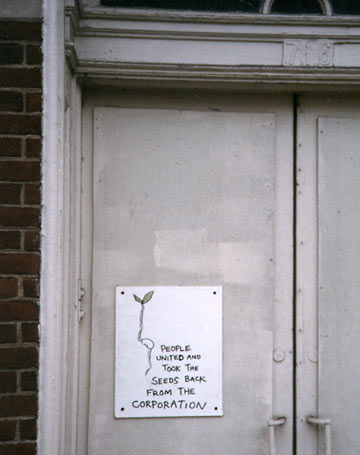 PEOPLE
UNITED AND
TOOK THE
SEEDS BACK
FROM THE
CORPORATION